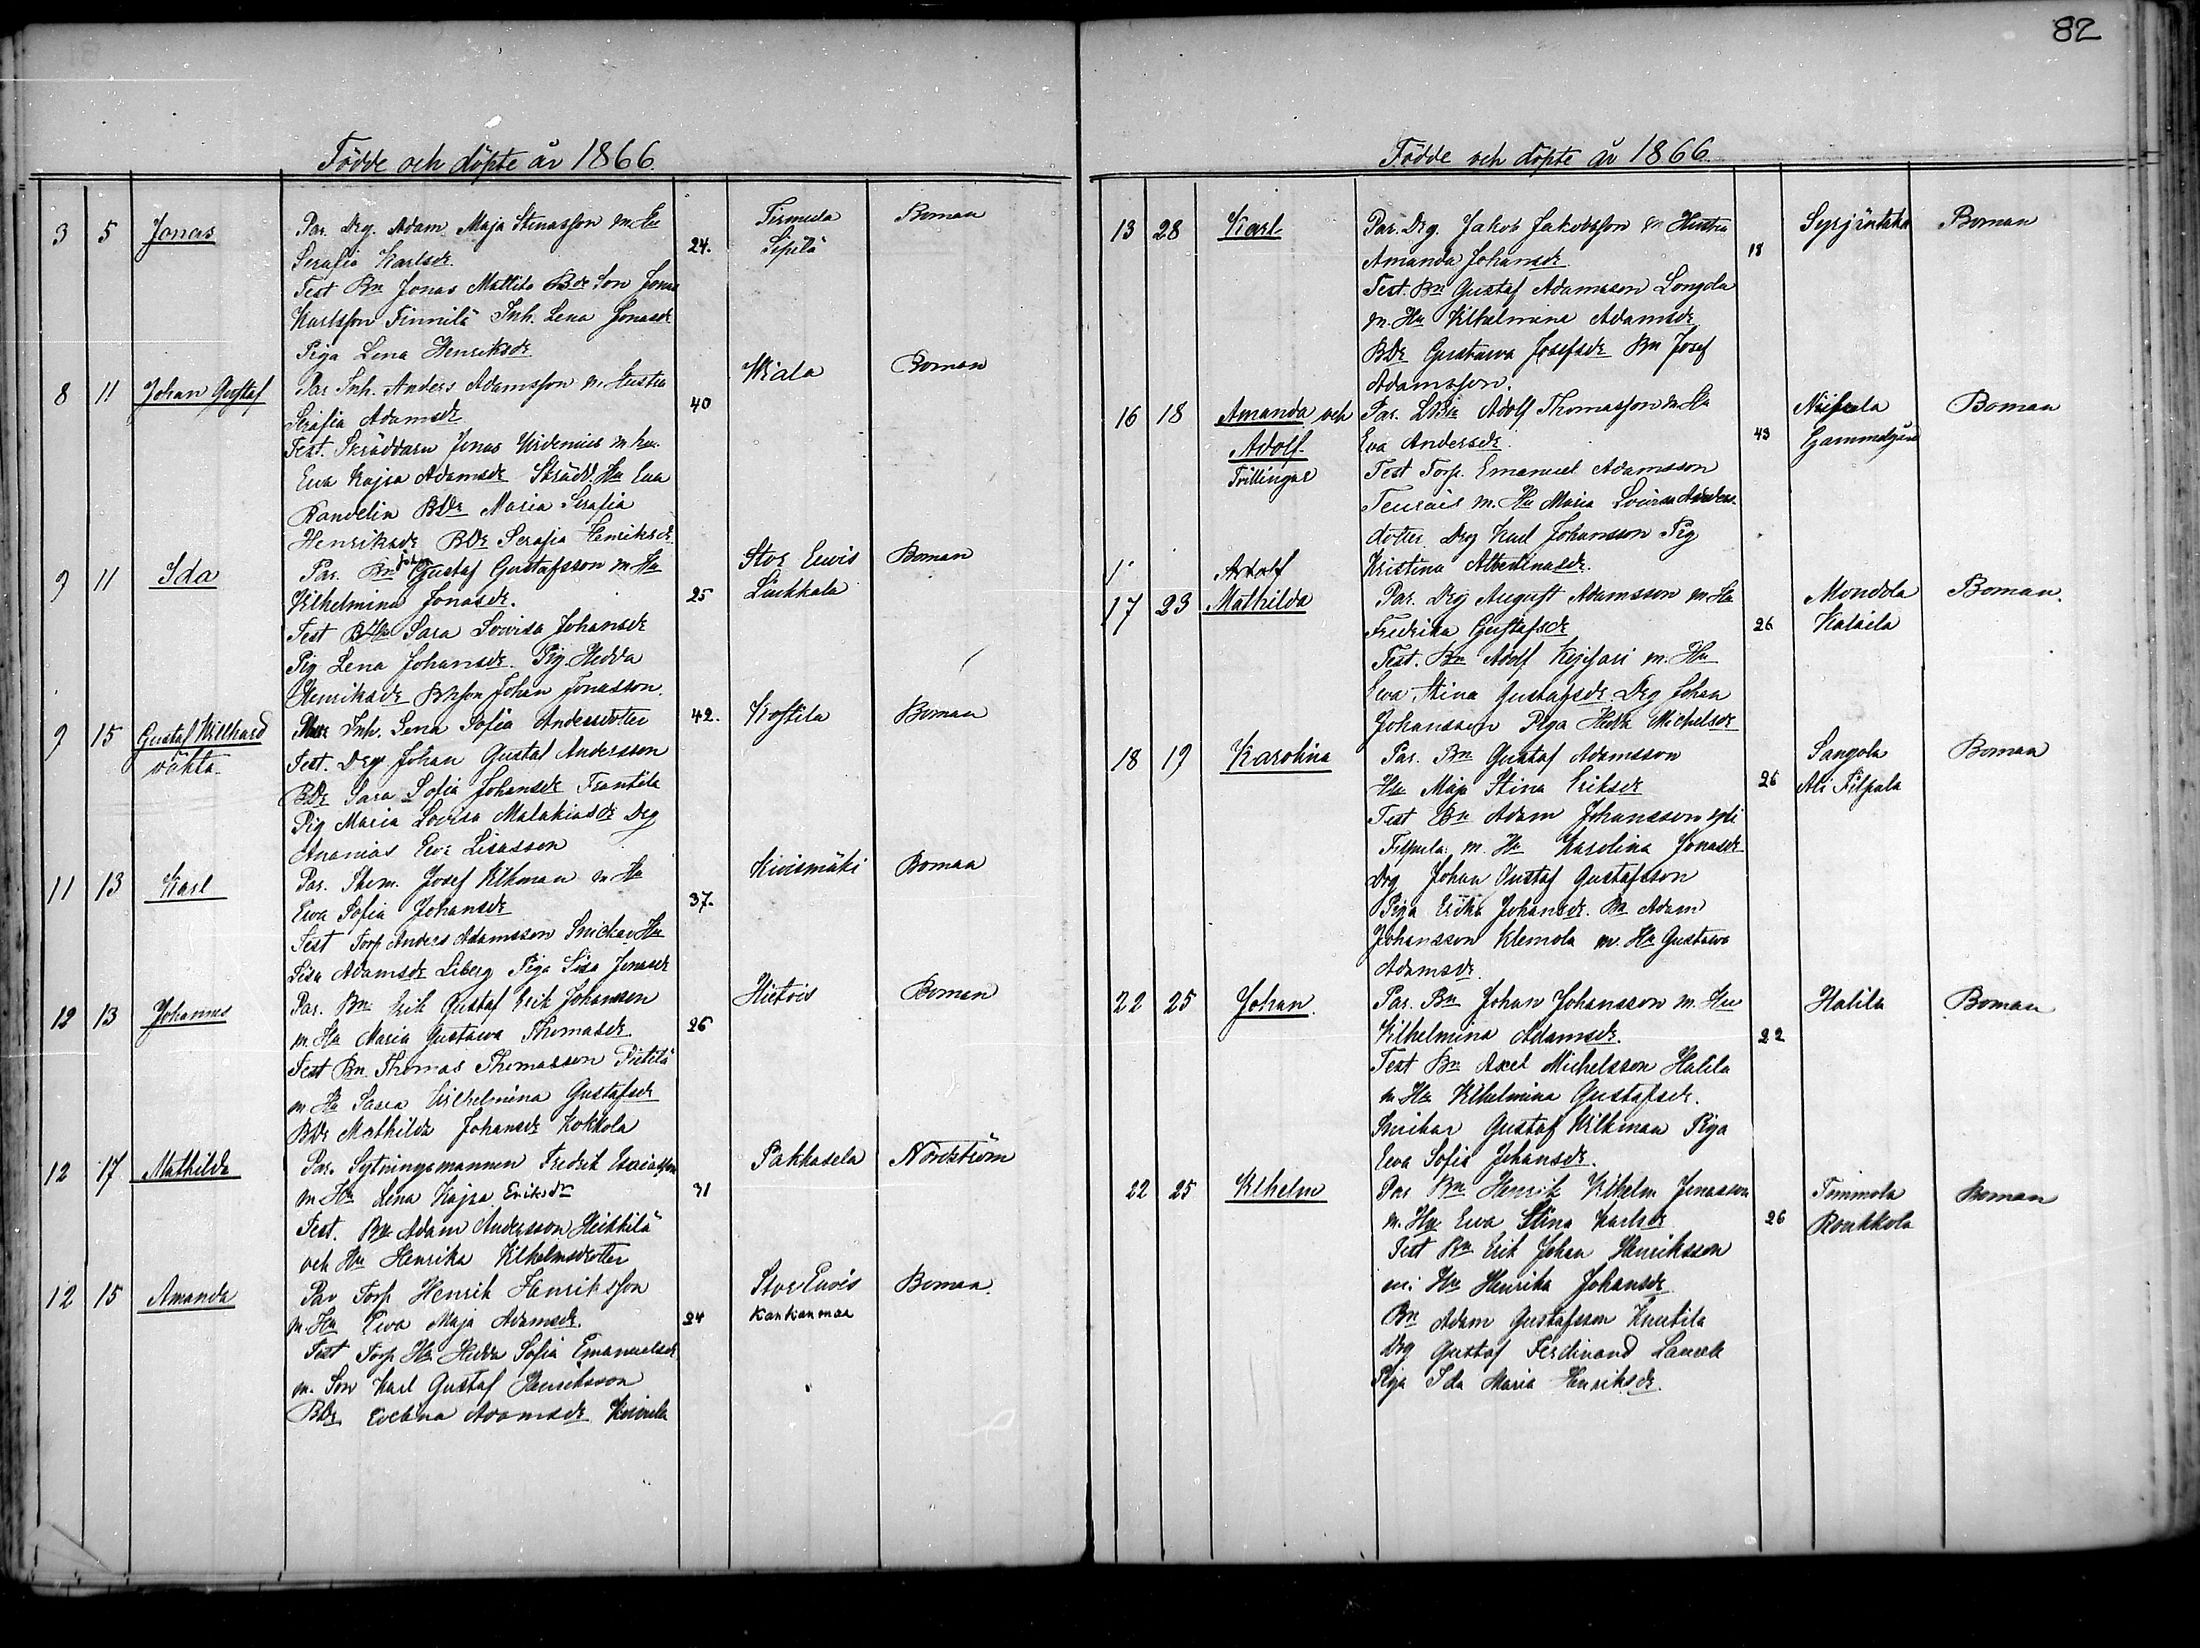 82
Födde och döpte år 1866.
3 5 Jonas Par. Drg. Adam Maja Stinasson m Hu 24. Tirmula Boman
Serafia Karlsdr. Sipilä
Test Bn Jonas Mattila Bde Son Jonas
Karlsson Finnilä Inh. Lena Jonasdr
Piga Lena Henriksdr
8 11 Johan Gustaf Par Inh. Anders Adamsson m. Hustru 40 Wiala Boman
Serafia Adamsdr
Test. Skräddarn Jonas Widenius m hu.
Ewa Kajsa Adamsdr Skrädd. Hu Ewa
Randelin BDr Maria Serafia
Henriksdr BDr Serafia Henriksdr.
9 11 Ida Par. Bn Gustaf Gustafsson m Hu 25 Stor Ewis Boman
Wilhelmina Jonasdr. Liukkala
Test BHu Sara Lowisa Johansdr
Pig Lena Johansdr. Pig. Hedda
Henriksdr Bnson Johan Jonasson.
9 15 Gustaf Willhard Inh. Lena Sofia Andersdotter 42. Kostila Boman
oäkta. Test. Drg Johan Gustaf Andersson
BDr Sara Sofia Johansdr Franttila
Pig Maria Lovisa Malakiasdr Drg
Ananias Eva Lisasson
11 13 Karl Par. Josef Wikman m Hu 37. Kivismäki Boman
Ewa Sofia Johansdr
Test Torp Anders Adamsson Snickar Hu
Lisa Adamsdr Liberg Piga Lisa Jonasdr
12 13 Johannes Par. Bn Erik Gustaf Erik Johansson 26 Hietois Boman
m Hu Maria Gustawa Thomasdr.
Test Bn Thomas Thomasson Pietilä
m Hu Sara Wilhelmina Gustafsdr
BDr Mathilda Johansdr Kokkola
12 17 Mathilda Par. Sytningsmannen Fredrik Esaiasson 31 Pakkasela Nordström
m Hu Lena Kajsa Eriksdr
Test. Bn Adam Andersson Heikkilä
och Hu Henrika Wilhelmsdotter
12 15 Amanda Par Torp Henrik Henriksson 24 Stor Ewis Boman.
m. Hu Ewa Maja Adamsdr. Kankanmaa
Test Torp Hu Hedda Sofia Emanuelsdr
m. Son Karl Gustaf Henriksson
BDr Evelina Adamsdr
Födde och döpte år 1866.
13 28 Karl Par. Drg. Jakob Jakobsson m Hustru 18 Syrjäntaka Boman
Amanda Johansdr.
Test. Bn Gustaf Adamsson Longola
m. Hu Wilhelmina Adamsdr
BDr Gustawa Josefsdr Bn Josef
Adamsson.
16 18 Amanda och Par. Adolf Thomasson m Hu 43 Boman
Adolf Eva Andersdr. Gammelgård
Tvillingar Test Torp. Emanuel Adamsson
m. Hu Maria Lovisa Anders
dotter Drg Karl Johansson Pig
Adolf Kristina Albertinasdr.
17 23 Mathilda Par. Drg August Adamsson m Hu 26 Mondola Boman.
Fredrika Gustafsdr Kalaila
Test. Bn Adolf Keijsari m. Hu
Ewa Stina Gustafsdr Drg Johan
Johansson Piga Hedda Michelsdr
18 19 Karolina Par. Bn Gustaf Adamsson 26 Sangola Boman
Hu Maja Stina Eriksdr Ali Filpala
Test Bn Adam Johansson
Filpula m. Hu Karolina Jonasdr
Drg Johan Gustaf Gustafsson
Piga Erika Johansdr. Bn Adam
Johansson Klemola m. Hu Gustawa
Adamsdr.
22 25 Johan Par. Bn Johan Johansson m. Hu 22 Halila Boman
Wilhelmina Adamsdr.
Test Bn Axel Michelsson Halila
m Hu Wilhelmina Gustafsdr.
Snickar Gustaf Wilkman Piga
Ewa Sofia Johansdr.
22 25 Wilhelm Par Bn Henrik Wilhelm Jonasson 26 Timmola Boman
m. Hu Ewa Stina Karlsdr Ronkkola
Test Bn Erik Johan Henriksson
m. Hu Henrika Johansdr
Bn Adam Gustafsson Knutila
Drg Gustaf Ferdinand
Piga Ida Maria Henriksdr.